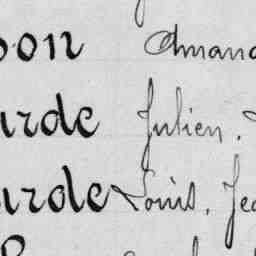 son Amand
urde Julien.
urde Louis, Jea